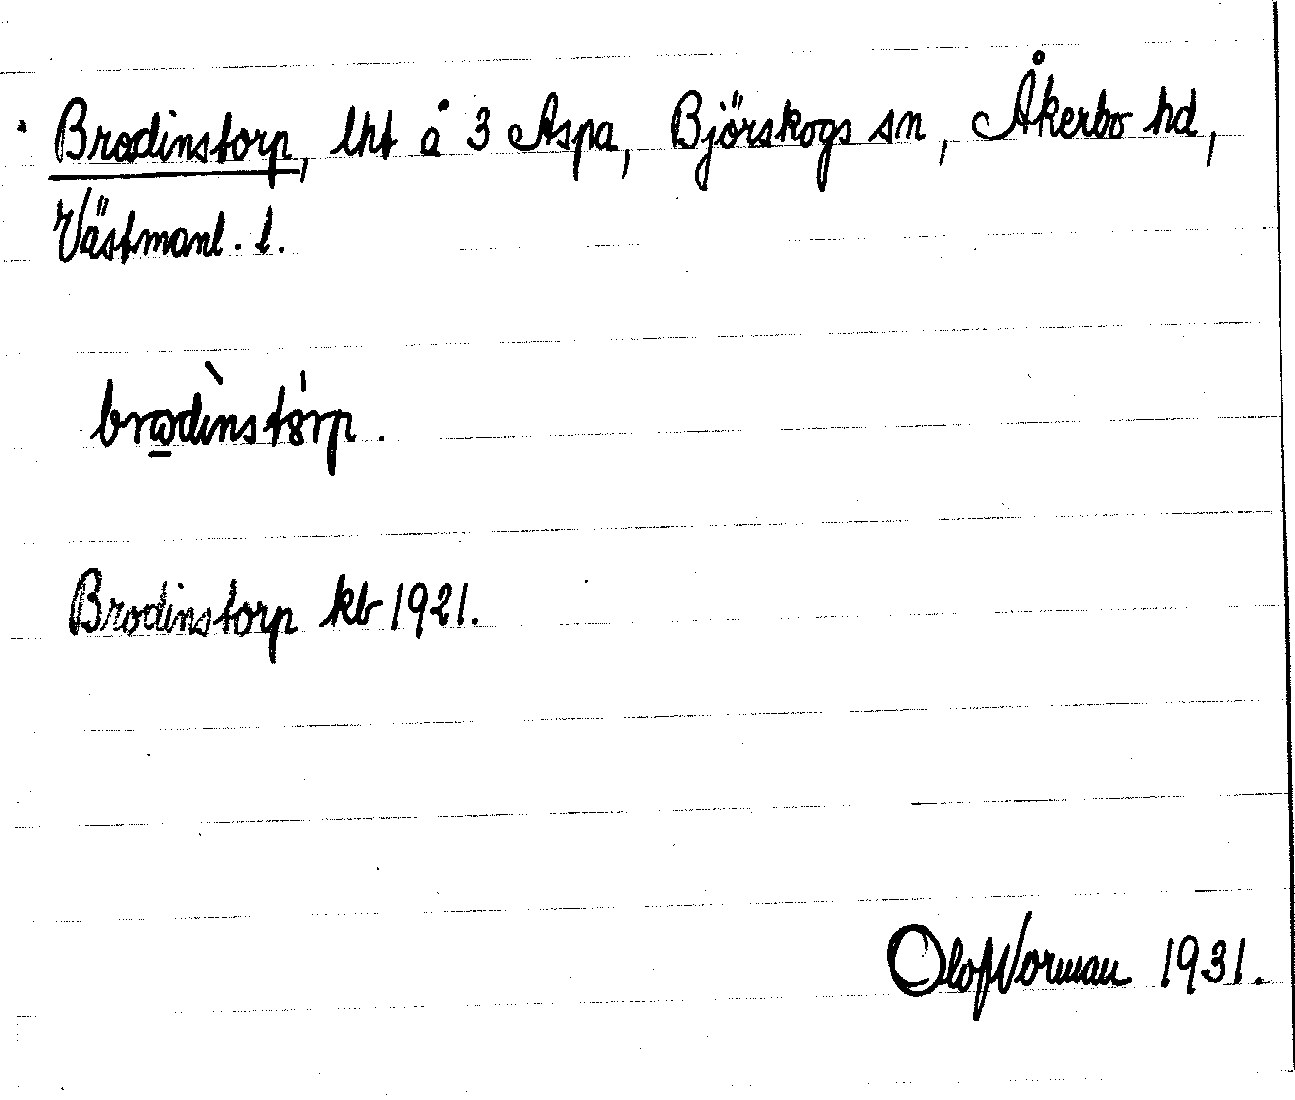 Brodinstorp, lht å 3 Aspa, Björskogs sn, Åkerbo hd,
Västmanl. l.
brodìnstórp.
Brodinstorp kb 1921.
Olof Norman 1931.